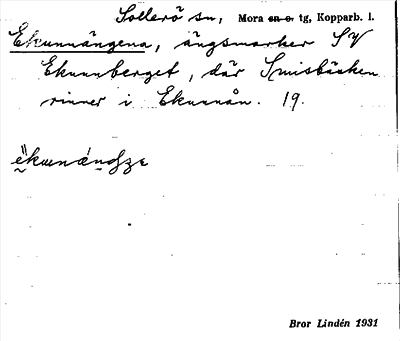 Sollerö sn, Mora sn o. tg, Kopparb. l.
Ekunnängena, ängsmarker SV
Ekunnberget, där Smisbäcken
rinner i Ekunnån. 19.
Bror Lindén 1931